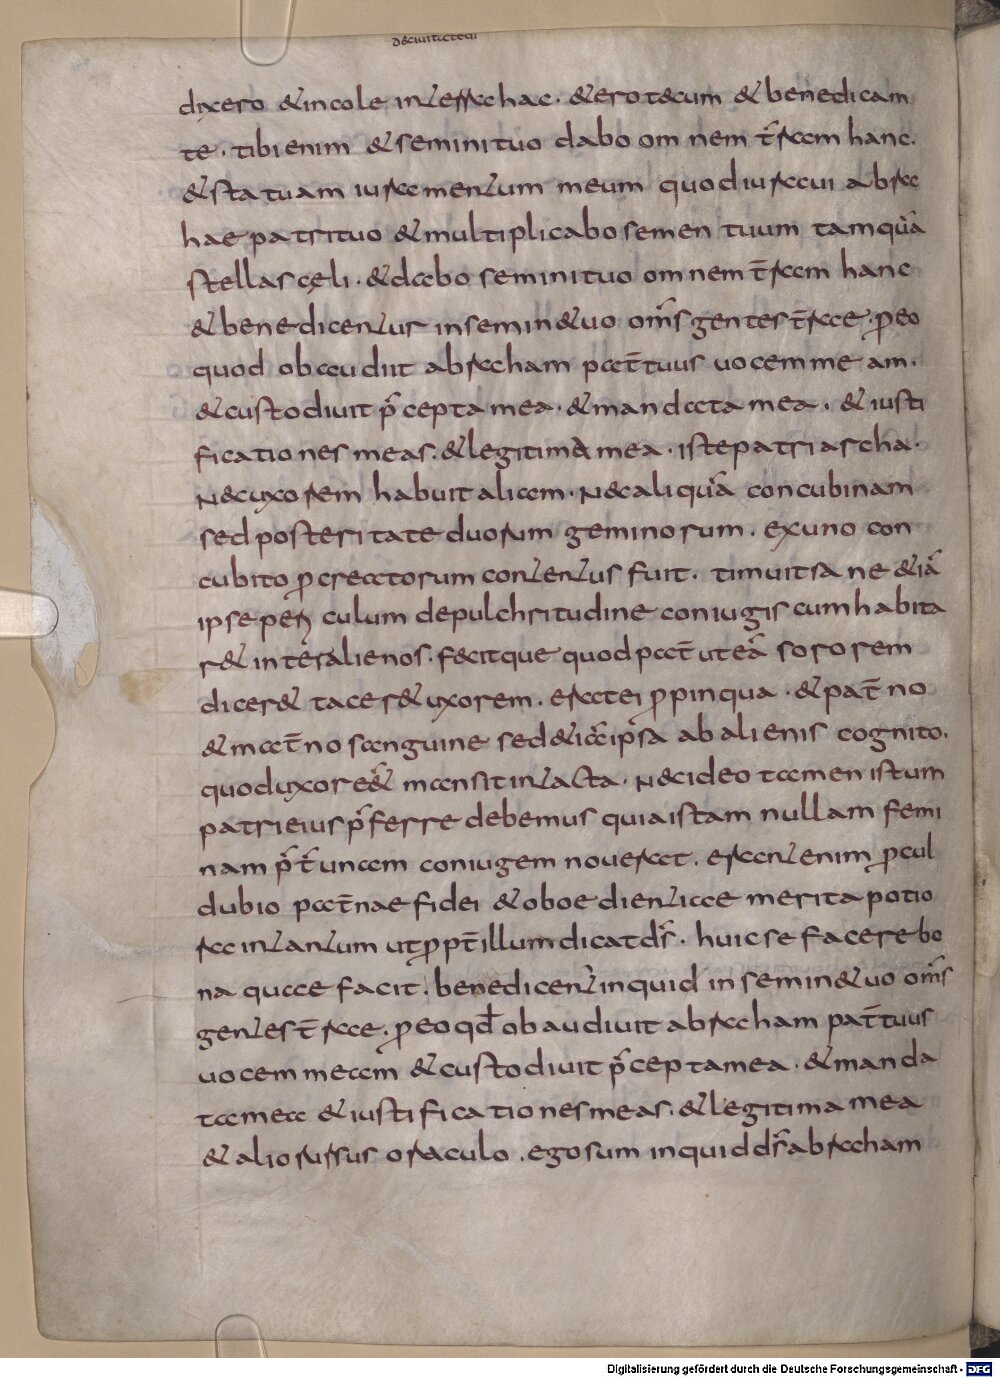 deciuitatedi
dixero & incole in terra hac. & ero tecum & benedicam
te. tibi enim & semini tuo dabo omnem t̄ram hanc.
& statuam iuramentum meum quod iuraui abra
hae patri tuo & multiplicabo semen tuum tamquā
stellas cęli. & dabo semini tuo omnem t̄ram hanc
& benedicentur in semine tuo om̄s gentes t̄rae. p eo
quod obaudiit abraham pat̄ tuus uocem meam.
& custodiuit p̄cepta mea. & mandata mea. & iusti
ficationes meas. & legitima mea. iste patriarcha.
nec uxorem habuit aliam. nec aliquā concubinam
sed posteritate duorum geminorum. ex uno con
cubito p creatorum contentus fuit. timuit sane &iā
ipse periculum de pulchritudine coniugis cum habita
r& inter alienos. fecitque quod pat̄ ut eā sororem
dicer& tacer& uxorem. erat ei ppinqua. & pat̄no
& mat̄no sanguine sed &iā ipsa ab alienis cognito.
quod uxor e& mansit intacta. nec ideo tamen istum
patri eius p̄ferre debemus quia istam nullam femi
nam p̄t̄ unam coniugem nouerat. erant enim pcul
dubio pat̄nae fidei & oboedientiae merita potio
ra in tantum ut ppt̄ illum dicat ds̄. huic se facere bo
na quae facit. benedicent inquid in semine tuo om̄s
gentes t̄rae. p eo qd̄ obaudiuit abraham pat̄ tuus
uocem meam & custodiuit p̄cepta mea. & manda
ta mea & iustificationes meas. & legitima mea
& alio rursus oraculo. ego sum inquid ds̄ abraham
Digitalisierung gefördert durch die Deutsche Forschungsgemeinschaft - DFG